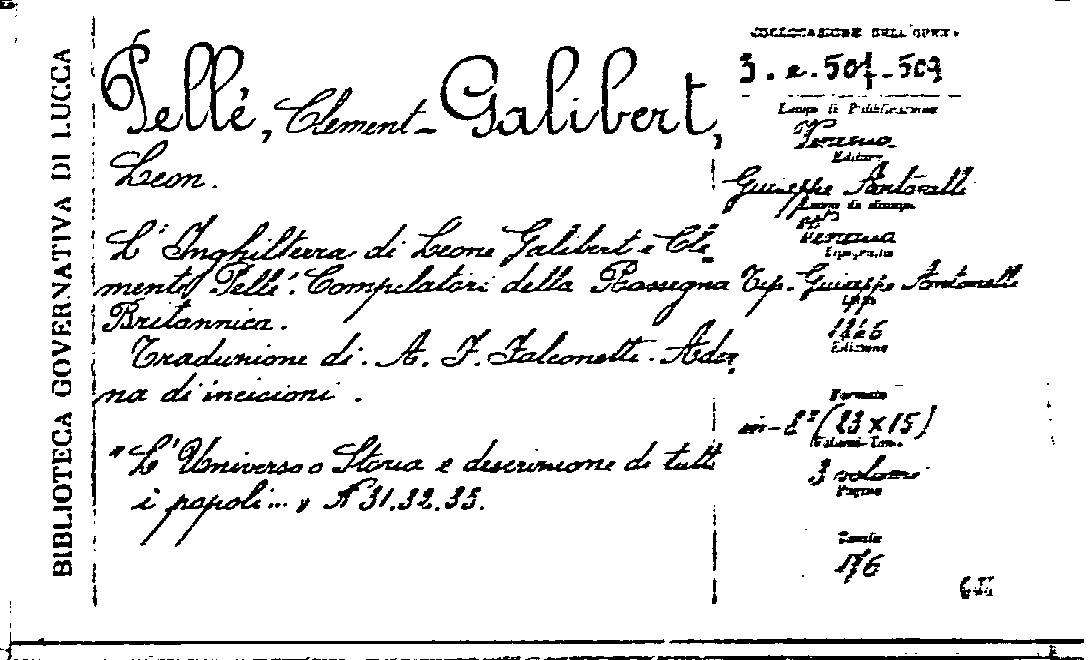 BIBLIOTECA GOVERNATIVA DI LUCCA
Pellé, Clement - Galibert,
Leon.
L'Inghilterra di Leone Galibert e Cle-
mento Pellé. Compilatori della Rassegna
Britannica.
Traduzione di. A. F. Falconetti. Ador
na di incisioni.
"L'Universo o Storia e descrizione di tutti
i popoli... " N 31.32.33.
COLLOCAZIONE DELL'OPERA
3. e. 507-509
Luogo di Pubblicazione
Venezia
Editore
Giuseppe Antonelli
Luogo di stampa
Venezia
Tipografia
Tip. Giuseppe Antonelli
Edizione
Formato
in-8° (23 x 15)
3 volumi
Pagine
Tavole
176